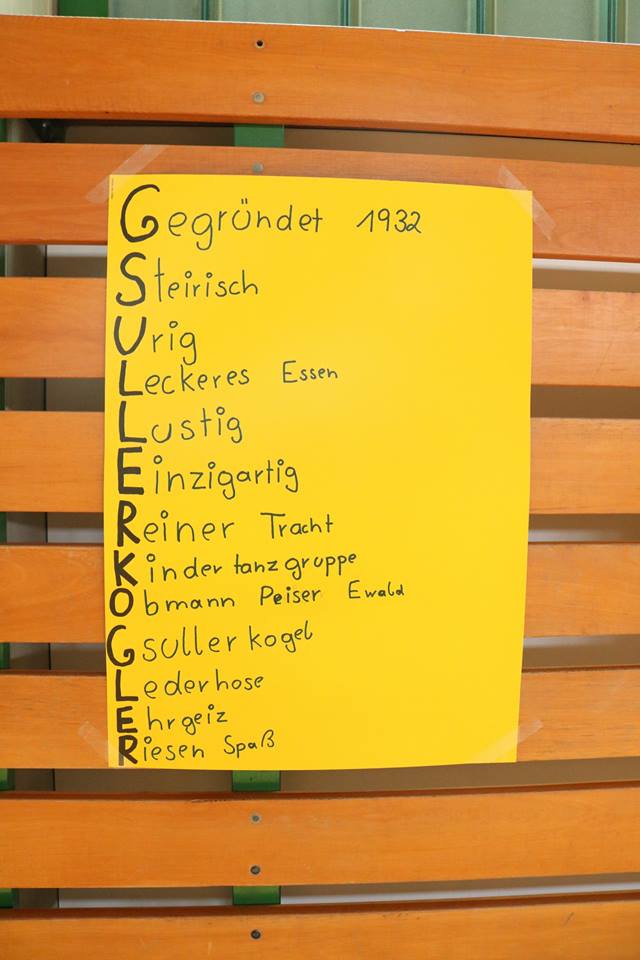 Gegründet 1932
Steirisch
Urig
Leckeres Essen
Lustig
Einzigartig
Reiner Tracht
Kindertanzgruppe
Obmann Peiser Ewald
Gsullerkogel
Lederhose
Ehrgeiz
Riesen Spaß